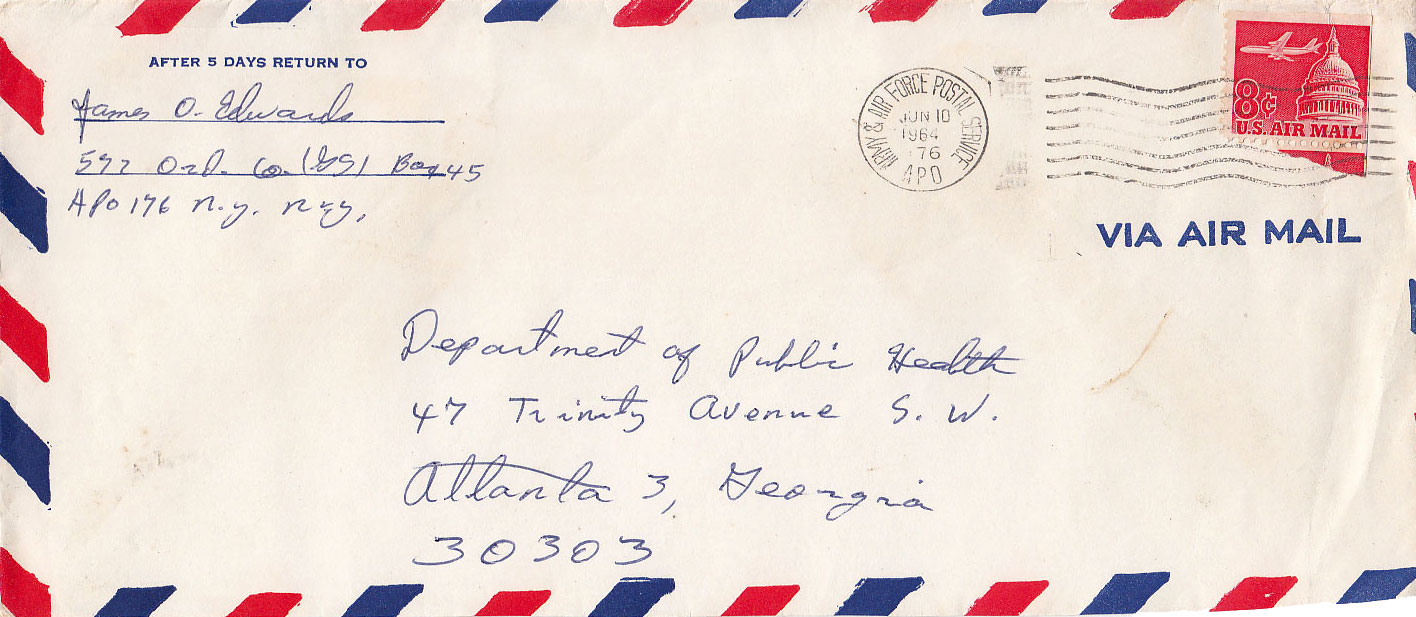 AFTER 5 DAYS RETURN TO
James O. Edwards
597 Ord. Co. (GS) Box 45
APO 176 N.y. N.y,
ARMY & AIR FORCE POSTAL SERVICE
JUN 10
1964
176
APO
8¢
U.S. AIR MAIL
VIA AIR MAIL
Department of Public Health
47 Trinity Avenue S. W.
Atlanta 3, Georgia
30303